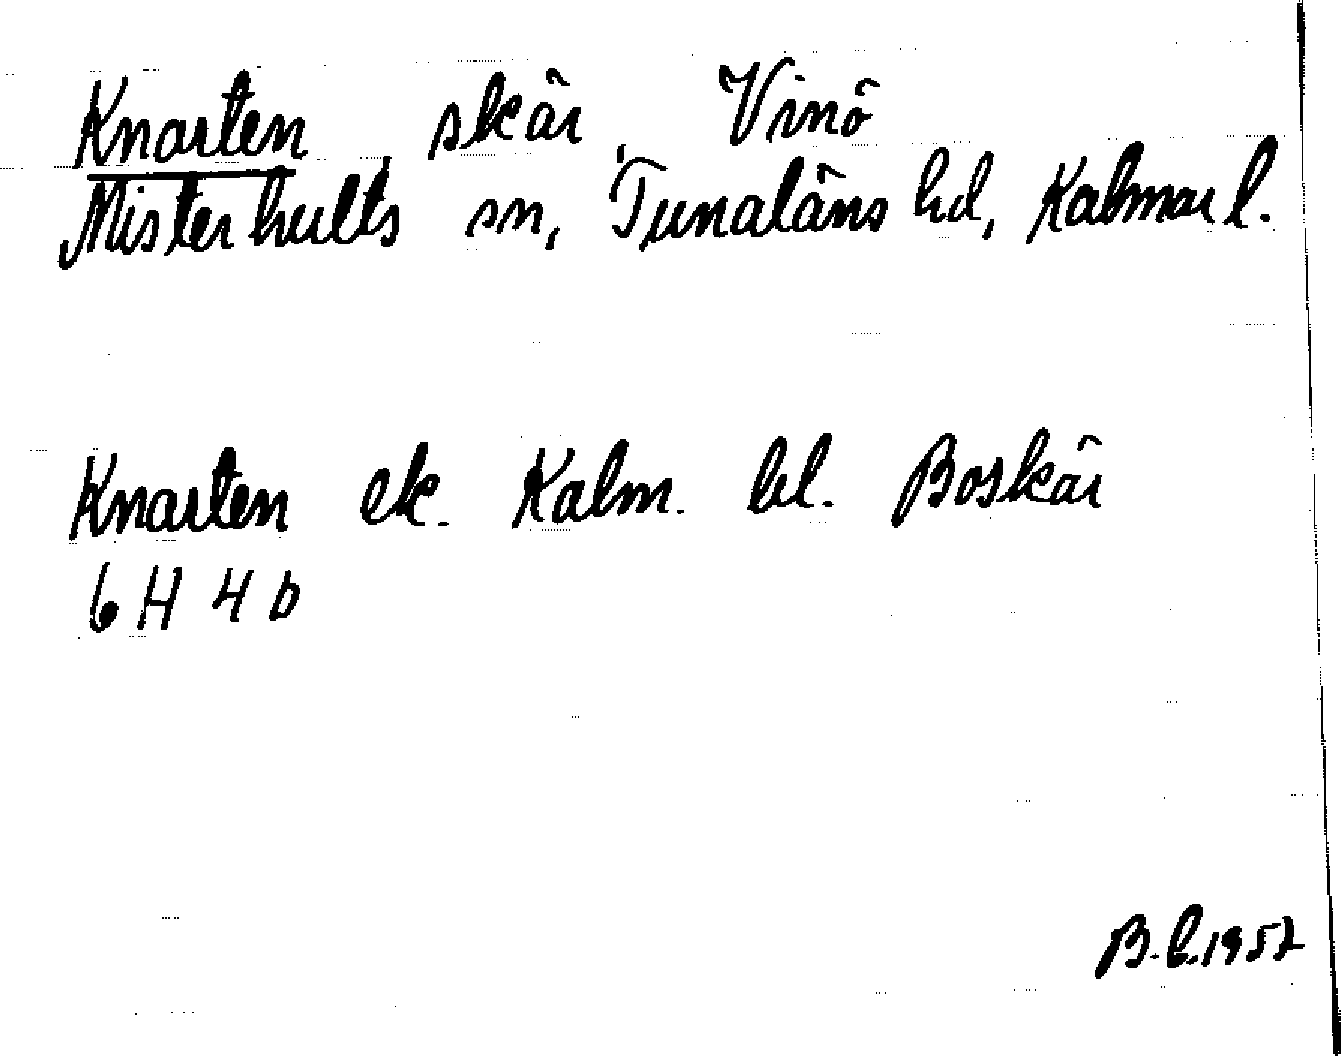 Knarten, skär, Vinö
Misterhults sn, Tunaläns hd, Kalmar l.
Knarten ek. Kalm. bl. Boskär
6 H 4 b
B.C. 1952